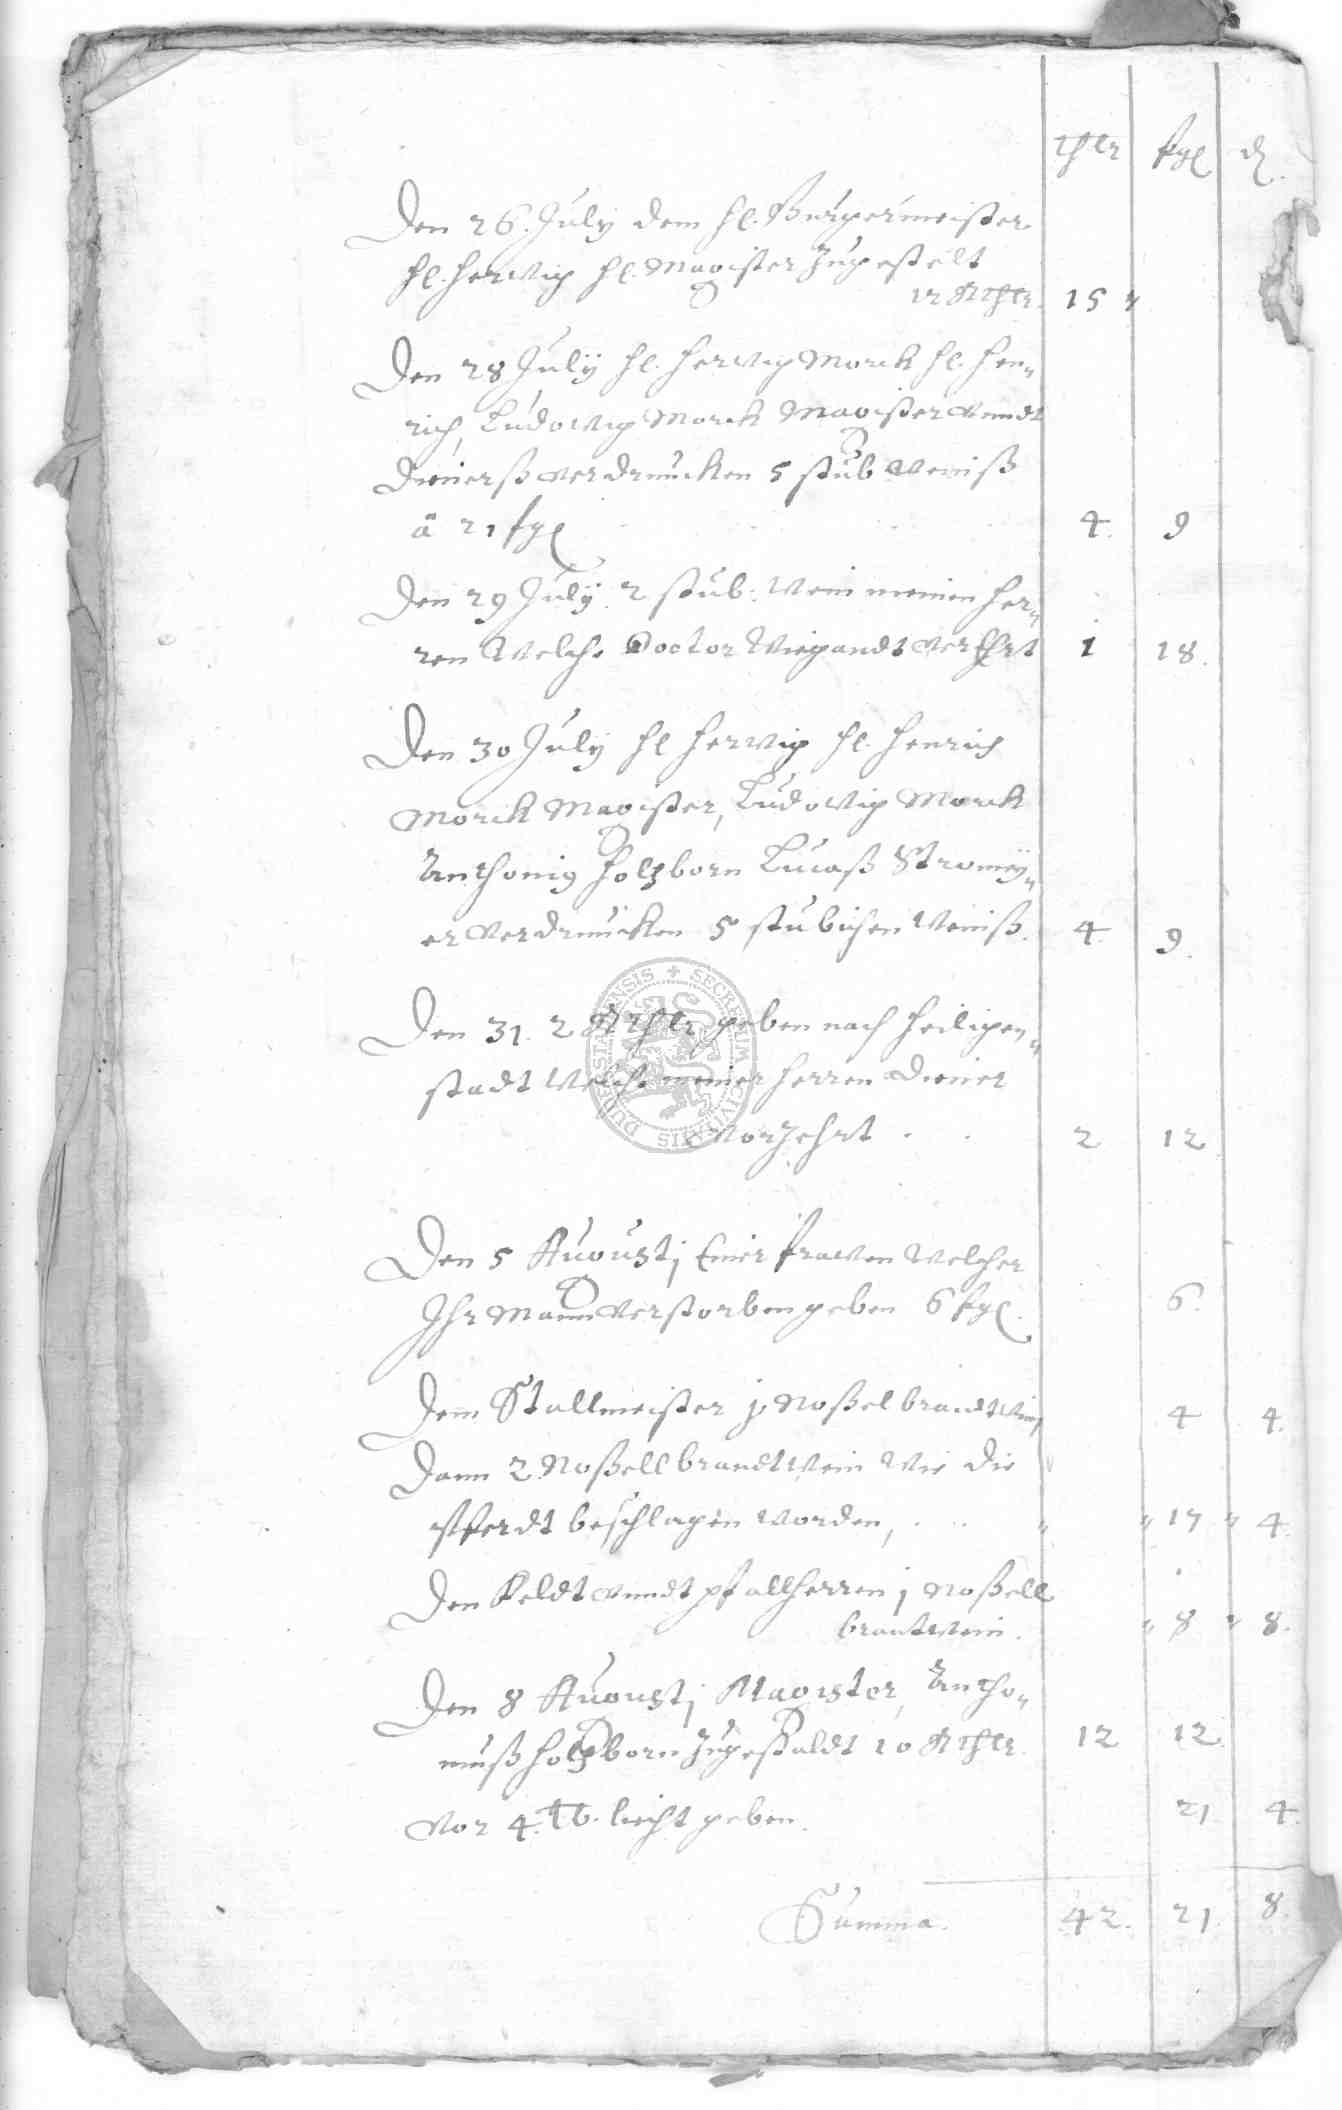 thlr fgl d.
Den 26. July dem Hl. Burgermeister
Hl. Herwig Hl. Magister Zugestelt
12 Rthlr. 15 "
Den 28 July Hl. Herwig Morick Hl. Hen„
rich, Ludowig Morick Magister vnndt
dienerß verdruncken 5 stub weinß
ä 21 fgl 4. 9
Den 29 July. 2 stub: wein meinen Her„
ren welche Doctor Wigandt verEhrt 1 18.
Den 30 July Hl Herwig Hl. Henrich
Morick Magister, Ludowig Morick
Anthonig Holzborn Lucaß Stromey„
er verdruncken 5 stubichen weinß. 4 9.
Den 31. 2 Rthlr geben nach Heiligen„
stadt welche meiner Herren diener
vorzehrt . . 2 12
Den 5 Augustj Einer frawen welcher
Ihr Mann verstorben geben 6 fgl. 6.
Dem Stallmeister j. Noßel brandtwein 4 4.
Dann 2 Noßell brandtwein wie die
pferdt beschlagen worden, . . " " 17 " 4.
Den Feldt vnndt pfallherren j Noßell
brantwein. " 8 " 8.
Den 8 Augustj Magister, Antho„
niuß Holzborn Zugestaldt 10 Rthlr. 12 12.
Vor 4. lb. liecht geben. 21. 4.
Summa. 42. 21. 8.
SECRETUM CIVITATIS DUDERSTADENSIS